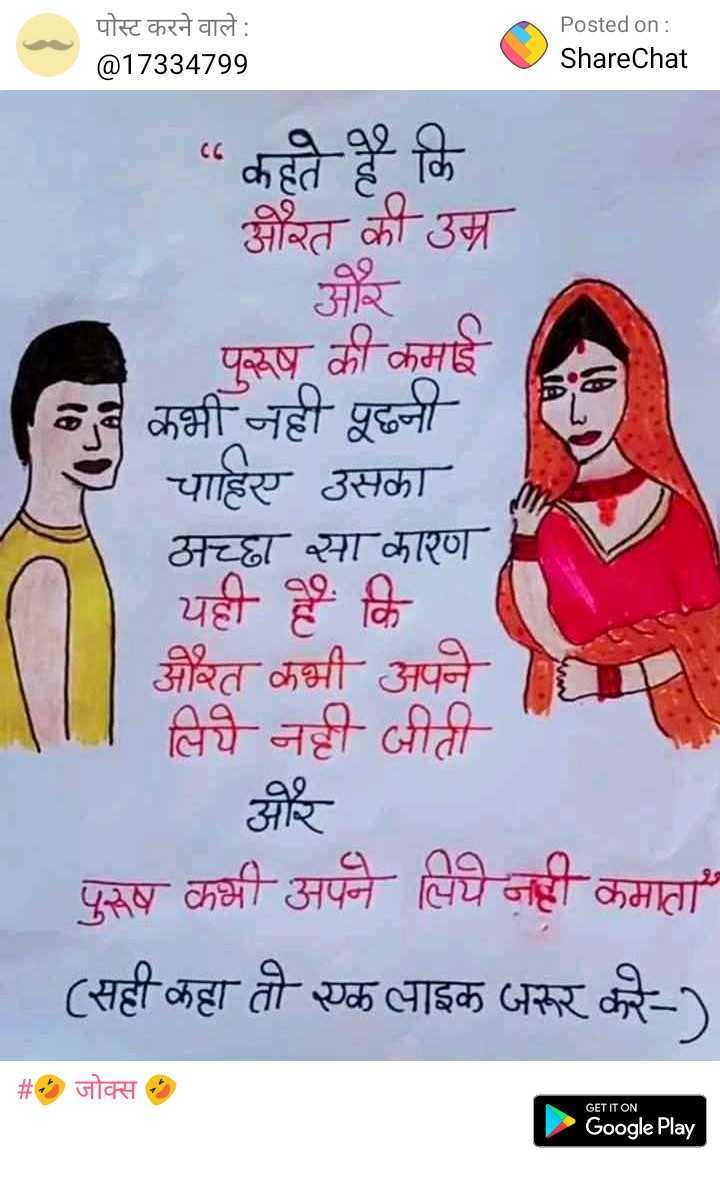 पोस्ट करने वाले :
@17334799
Posted on :
ShareChat
“ कहते है कि
औरत की उम्र
और
पुरूष की कमाई
कभी नही पूछनी
चाहिए उसका
अच्छा सा कारण
यही हैं कि
औरत कभी अपने
लिये नही जीती
और
पुरूष कभी अपने लिये नही कमाता”
(सही कहा तो एक लाइक जरूर करे-)
#🤣 जोक्स 🤣
GET IT ON
Google Play